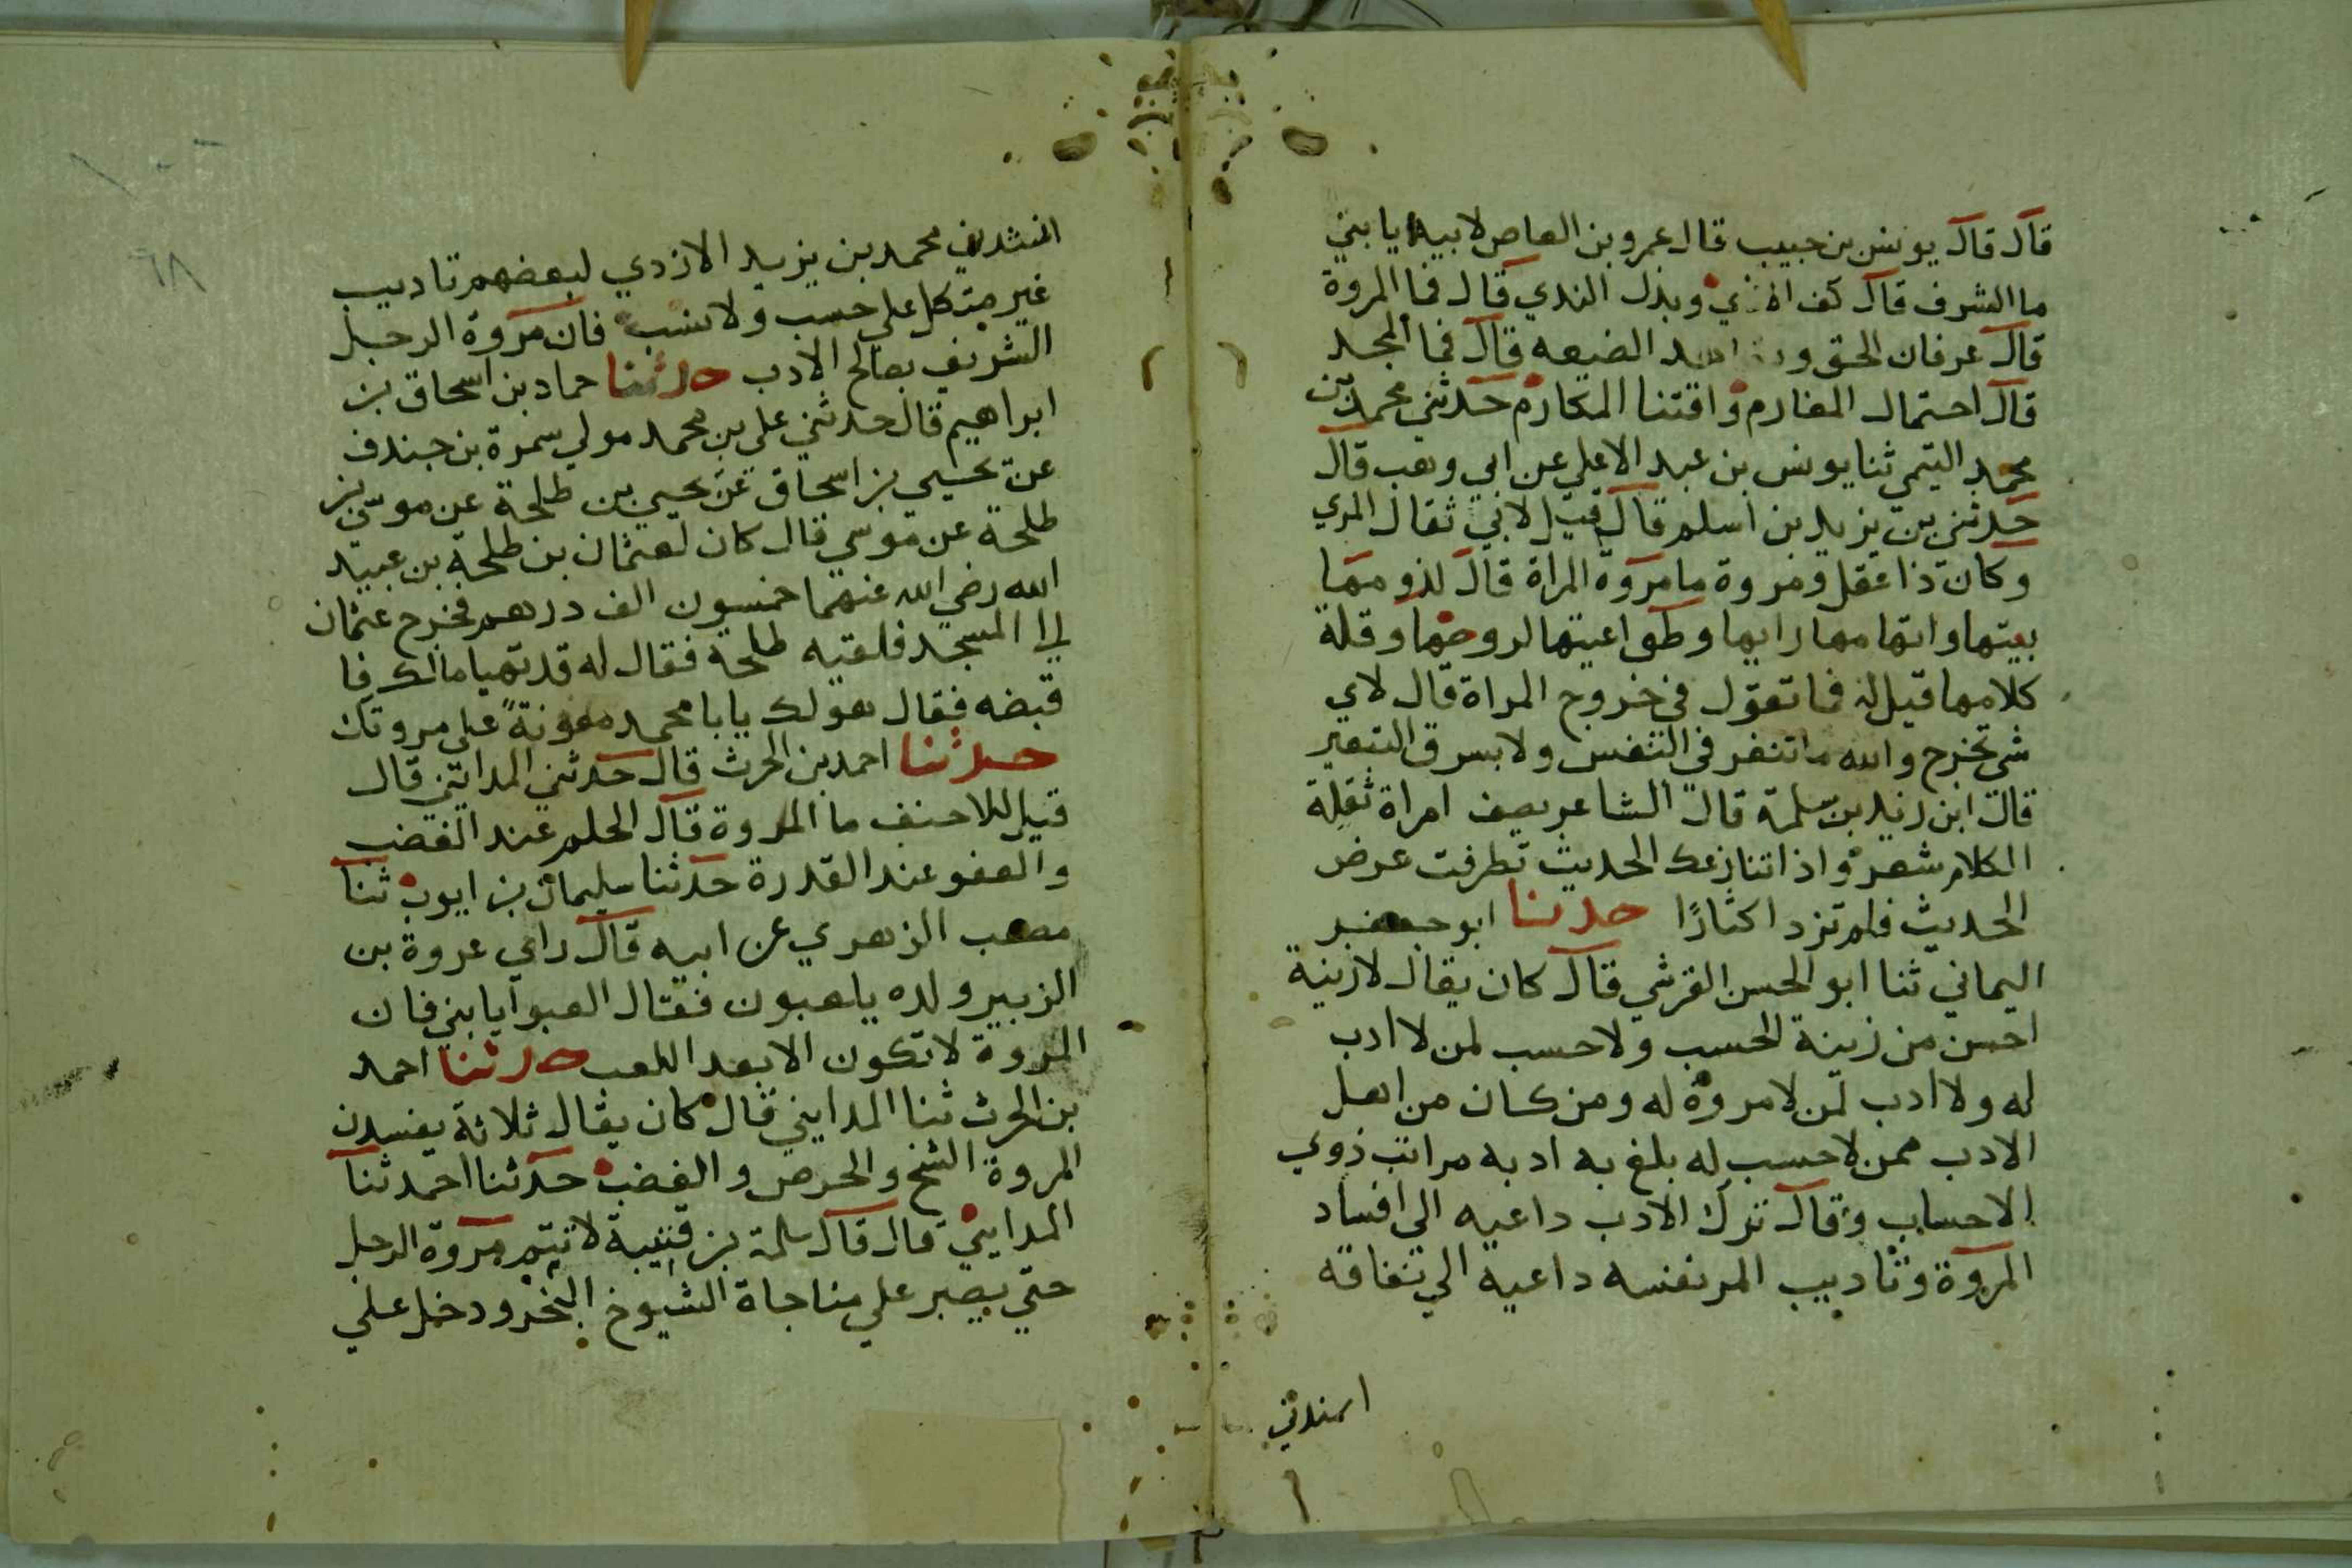 قال قال يونس بن حبيب قال عمرو بن العاص لابيه يا بني
ما الشرف قال كف الاذي وبذل الندي قال فما المروة
قال عرفان الحق و الضيعه قال فما المجد
قال احتمال المغارم واقتنا المكارم حدثني محمد بن
محمد التيمي ثنا يونس بن عبد الاعلي عن ابي وهب قال
حدثني بن يزيد بن اسلم قال قيل لابي ثفال المري
وكان ذا عقل ومروة ما مروة المراة قال لذومها
بيتها واتهامها رايها وطواعيتها لروجها وقلة
كلامها قيل له فما تقول في خروج المراة قال لاي
شي تخرج والله ما تنفر في النفس ولا بسر ق البعير
قال ابن زيد بن سلمة قال الشاعر يصف امراة ثقلة
الكلام شعر واذا تنازعك الحديث تطرفت عرض
الحديث فلم تزد اكثارًا حدثنا ابو جعفر
اليماني ثنا ابو الحسن القرشي قال كان يقال لا زينة
احسن من زينة الحسب ولا حسب لمن لا ادب
له ولا ادب لمن لا مروة له ومن كان من اهل
الادب ممن لا حسب له بلغ به ادبه مراتب ذوي
الاحساب وقال ترك الادب داعيه الى افساد
المروة وتاديب المر نفسه داعية الي نفاقه
انشدني
انشدني محمد بن يزيد الازدي لبعضهم تاديب
غير متكل علي حسب ولا نسب فان مروة الرجل
الشريف بصالح الادب حدثنا حماد بن اسحاق بن
ابراهيم قال حدثني علي بن محمد مولي سمرة بن جندف
عن يحيي بن اسحاق عن يحيي بن طلحة عن موسي بن
طلحة عن موسي قال كان لعثمان بن طلحة بن عبيد
الله رضي الله عنهما خمسون الف درهم فخرج عثمان
الي المسجد فلقيه طلحة فقال له قد تهيا مالك فا
قبضه فقال هو لك يابا محمد معونةً علي مروتك
حدثنا احمد بن الحرث قال حدثني المدايني قال
قيل للاحنف ما المروة قال الحلم عند الغضب
والعفو عند القدرة حدثنا سليمان بن ايوب ثنا
مصعب الزهري عن ابيه قال راي عروة بن
الزبير ولده يلعبون فقال العبوا يا بني فان
المروة لا تكون الا بعد اللعب حدثنا احمد
بن الحرث ثنا المدايني قال كان يقال ثلاثة يفسدن
المروة الشح والحرص والغضب حدثنا احمد ثنا
المدايني قال قال سلمة بن قتيبة لا تتم مروة الرجل
حتي يصبر علي مناجاة الشيوخ البخر ودخل علي
٦٨